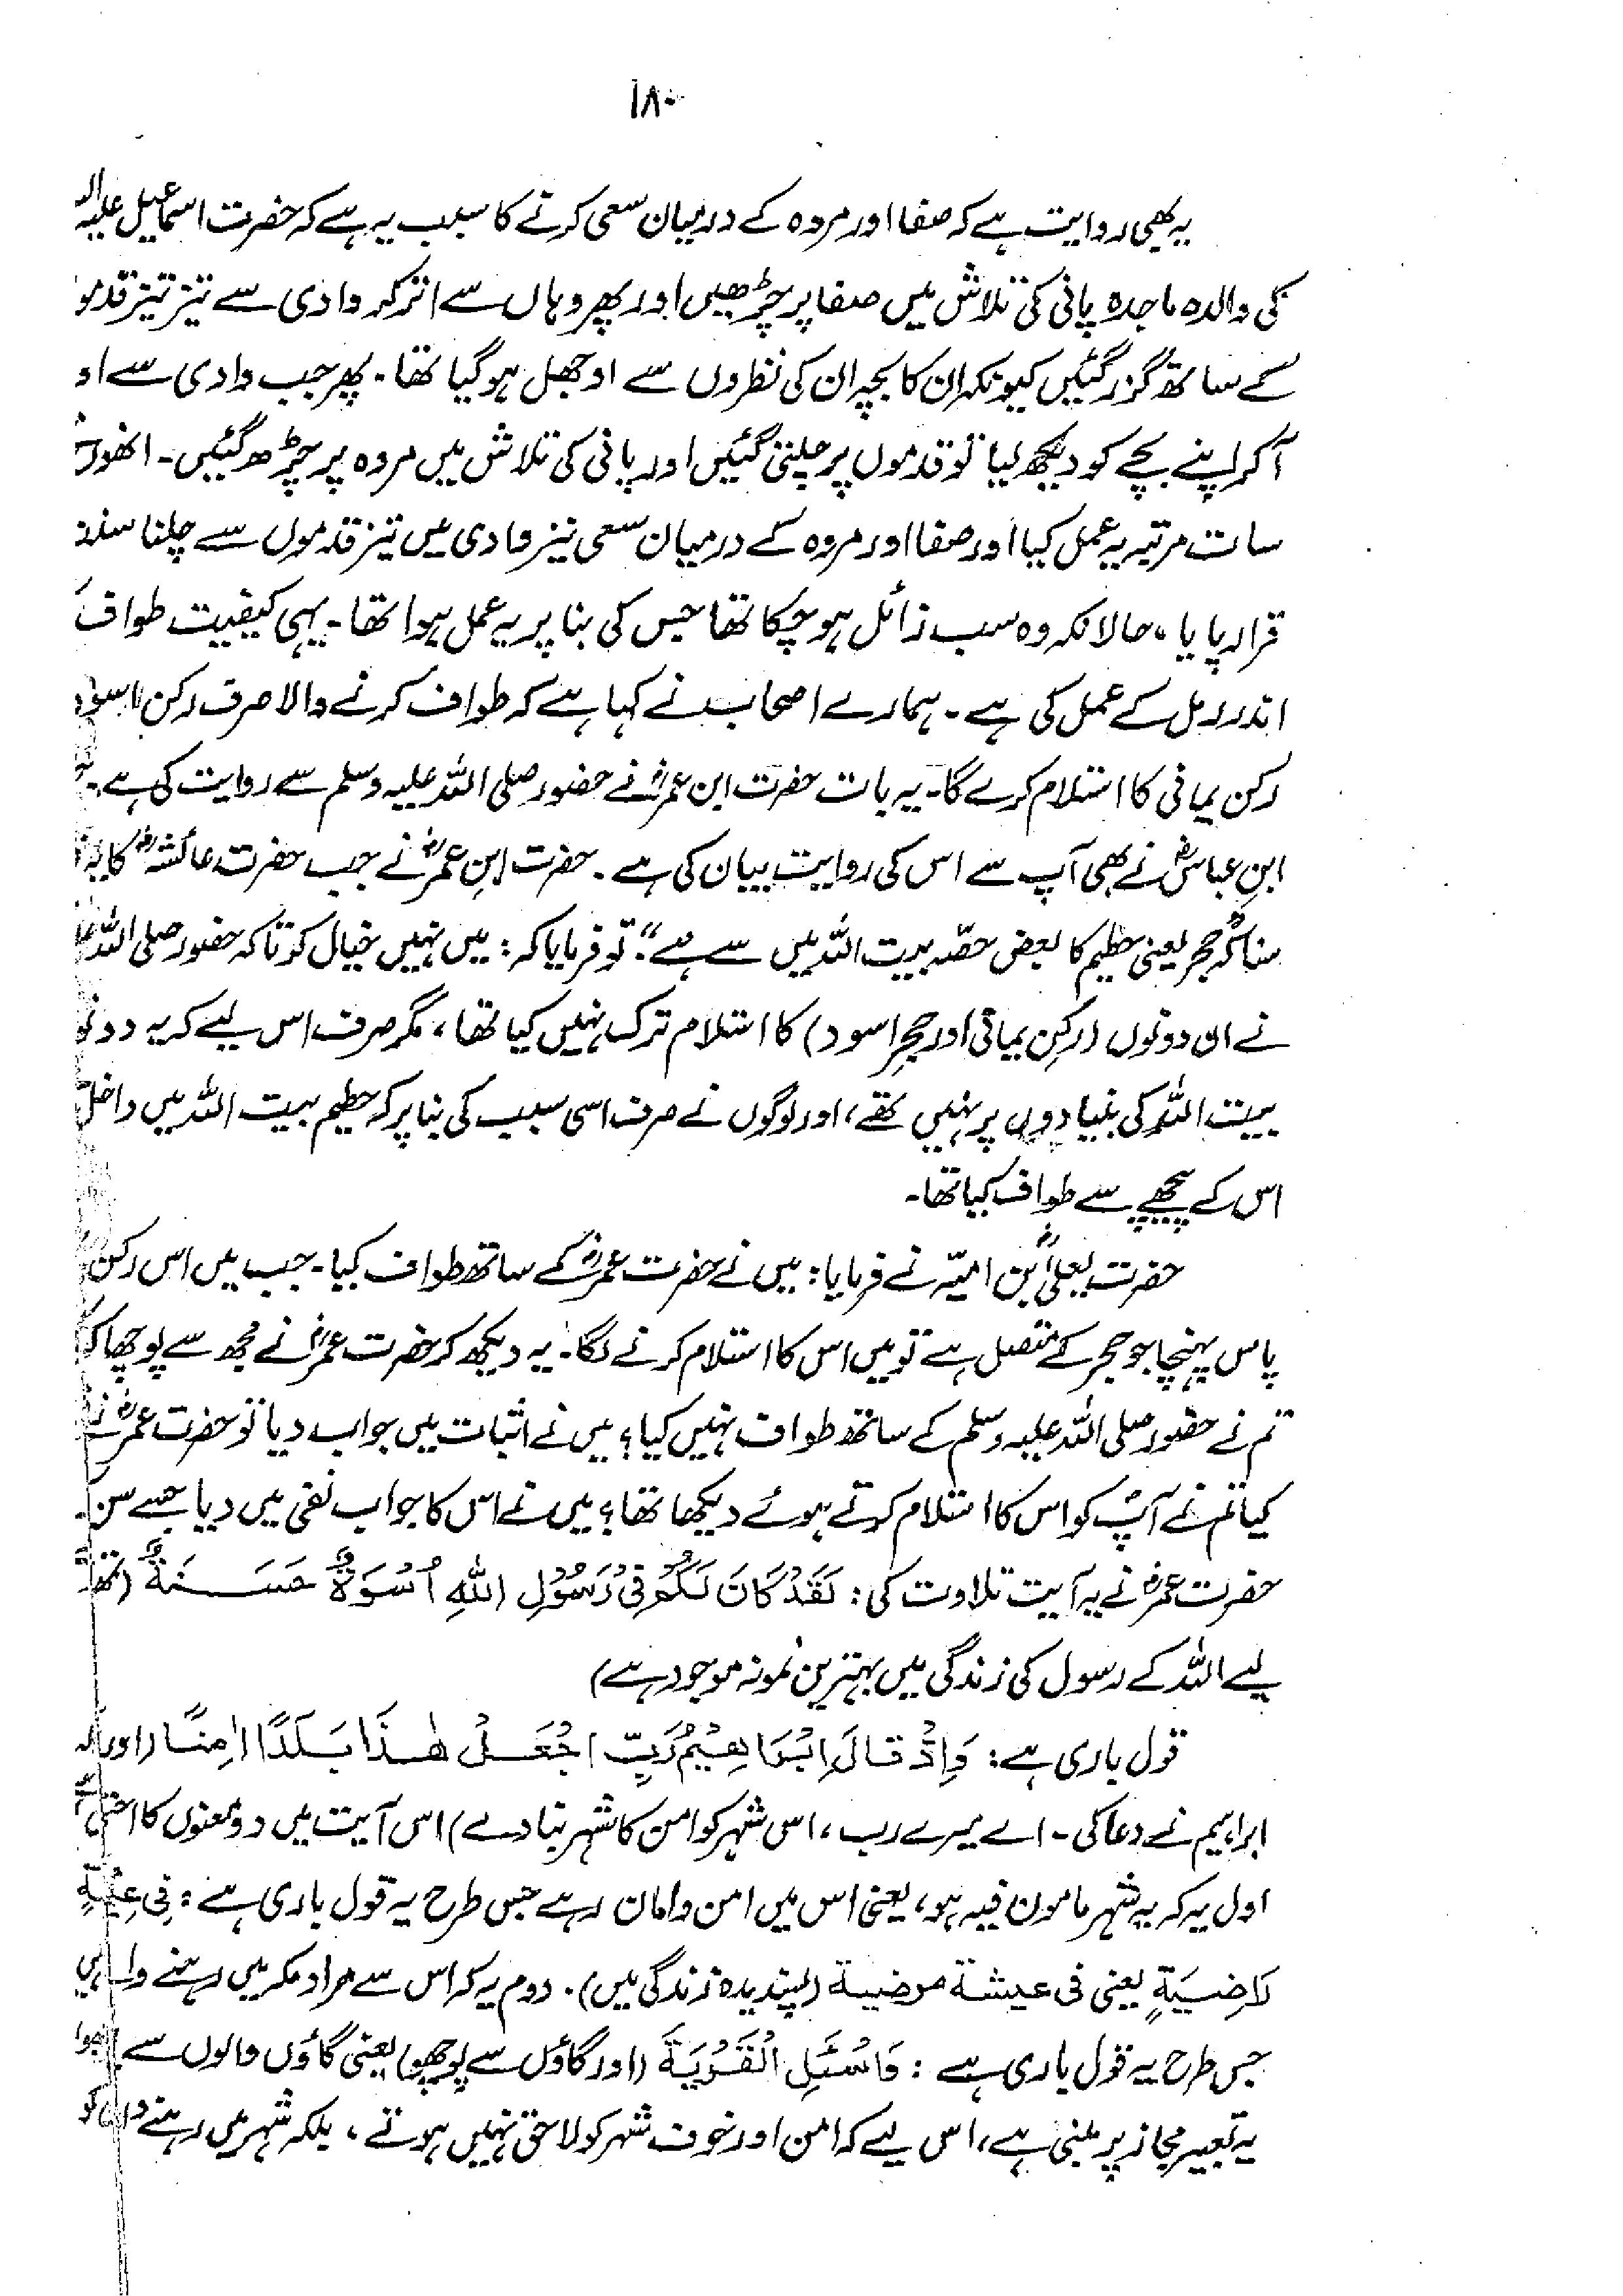 ۱۸۰
یہ بھی روایت ہے کہ صفا اور مروہ کے درمیان سعی کرنے کا سبب یہ ہے کہ حضرت اسماعیل علیہ
کی والدہ ماجدہ پانی کی تلاش میں صفا پر چڑھیں اور پھر وہاں سے اتر کر وادی سے تیز تیز
کے ساتھ گزر گئیں کیونکہ ان کا بچہ ان کی نظروں سے اوجھل ہو گیا تھا۔ پھر جب وادی سے
آکر اپنے بچے کو دیکھ لیا تو قدموں پر چلتی گئیں اور پانی کی تلاش میں مروہ پر چڑھ گئیں۔
سات مرتبہ یہ عمل کیا اور صفا اور مروہ کے درمیان سعی نیز وادی میں تیز قدموں سے چلنا
قرار پایا، حالانکہ وہ سبب زائل ہو چکا تھا جس کی بنا پر یہ عمل ہوا تھا۔ یہی کیفیت طواف
اندر رمل کے عمل کی ہے۔ ہمارے اصحاب نے کہا ہے کہ طواف کرنے والا صرف رکن اسود
رکن یمانی کا استلام کرے گا۔ یہ بات حضرت ابن عمرؓ نے حضور صلی اللہ علیہ وسلم سے روایت کی ہے۔
ابنِ عباسؓ نے بھی آپ سے اس کی روایت بیان کی ہے۔ حضرت ابنِ عمرؓ نے جب حضرت عائشہؓ کا یہ
سنا کہ "حجر یعنی حطیم کا بعض حصّہ بیت اللہ میں سے ہے"۔ تو فرمایا کہ: میں نہیں خیال کرتا کہ حضور صلی اللہ
نے ان دونوں (رکنِ یمانی اور حجرِ اسود) کا استلام ترک نہیں کیا تھا، مگر صرف اس لیے کہ یہ
بیت اللہ کی بنیادوں پر نہیں تھے، اور لوگوں نے صرف اسی سبب کی بنا پر کہ حطیم بیت اللہ میں داخل
اس کے پیچھے سے طواف کیا تھا۔
حضرت یعلیٰؓ بن امیّہ نے فرمایا: میں نے حضرت عمرؓ کے ساتھ طواف کیا۔ جب میں اس رکن
پاس پہنچا جو حجر کے متصل ہے تو میں اس کا استلام کرنے لگا۔ یہ دیکھ کر حضرت عمرؓ نے مجھ سے پوچھا
تم نے حضور صلی اللہ علیہ وسلم کے ساتھ طواف نہیں کیا؟ میں نے اثبات میں جواب دیا تو حضرت عمرؓ
کیا تم نے آپؐ کو اس کا استلام کرتے ہوئے دیکھا تھا؟ میں نے اس کا جواب نفی میں دیا جسے سن
حضرت عمرؓ نے یہ آیت تلاوت کی: لَقَدْ كَانَ لَكُمْ فِیْ رَسُوْلِ اللهِ اُسْوَةٌ حَسَنَةٌ
لیے اللہ کے رسول کی زندگی میں بہترین نمونہ موجود ہے)
قول باری ہے: وَاِذْ قَالَ اِبْرَاهِيْمُ رَبِّ اجْعَلْ هٰذَا بَلَدًا اٰمِنًا (اور
ابراہیم نے دعا کی۔ اے میرے رب، اس شہر کو امن کا شہر بنا دے) اس آیت میں دو معنوں کا
اول یہ کہ یہ شہر مامون فیہ ہو، یعنی اس میں امن و امان رہے جس طرح یہ قول باری ہے: فِی
رَاضِيَةٍ یعنی فی عیشة مرضیة (پسندیدہ زندگی میں)۔ دوم یہ کہ اس سے مراد مکہ میں رہنے
جس طرح یہ قول باری ہے: وَاسْئَلِ الْقَرْيَةَ (اور گاؤں سے پوچھو) یعنی گاؤں والوں سے
یہ تعبیر مجاز پر مبنی ہے، اس لیے کہ امن اور خوف شہر کو لاحق نہیں ہوتے، بلکہ شہر میں رہنے